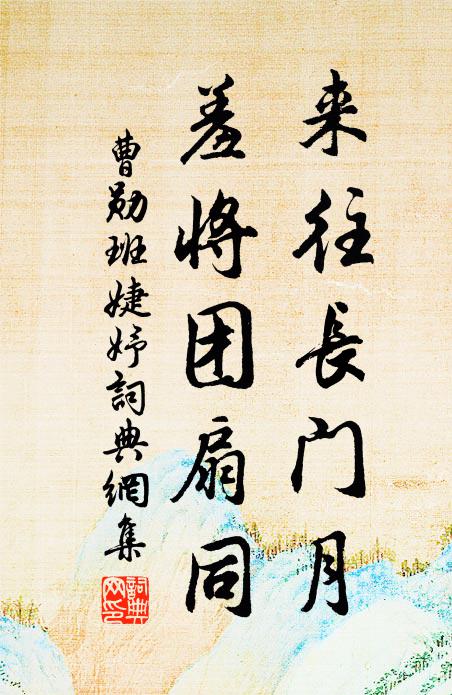 来往長门月
羞將团扇同
曹勛班婕妤詞典網集
詞典网印